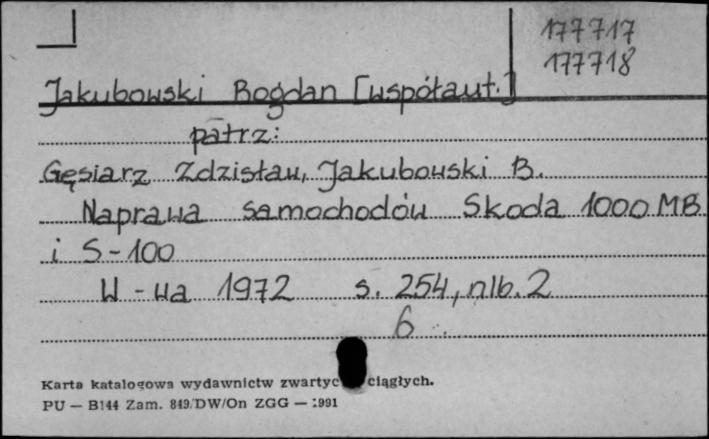 177717
177718
Jakubowski Bogdan [współaut.]
patrz:
Gęsiarz Zdzisław, Jakubowski B.
Naprawa samochodów Skoda 1000 MB
i S-100
W-wa 1972 s. 254, nlb. 2
6
Karta katalogowa wydawnictw zwartyc ciągłych.
PU — B144 Zam. 849/DW/On ZGG — 1991